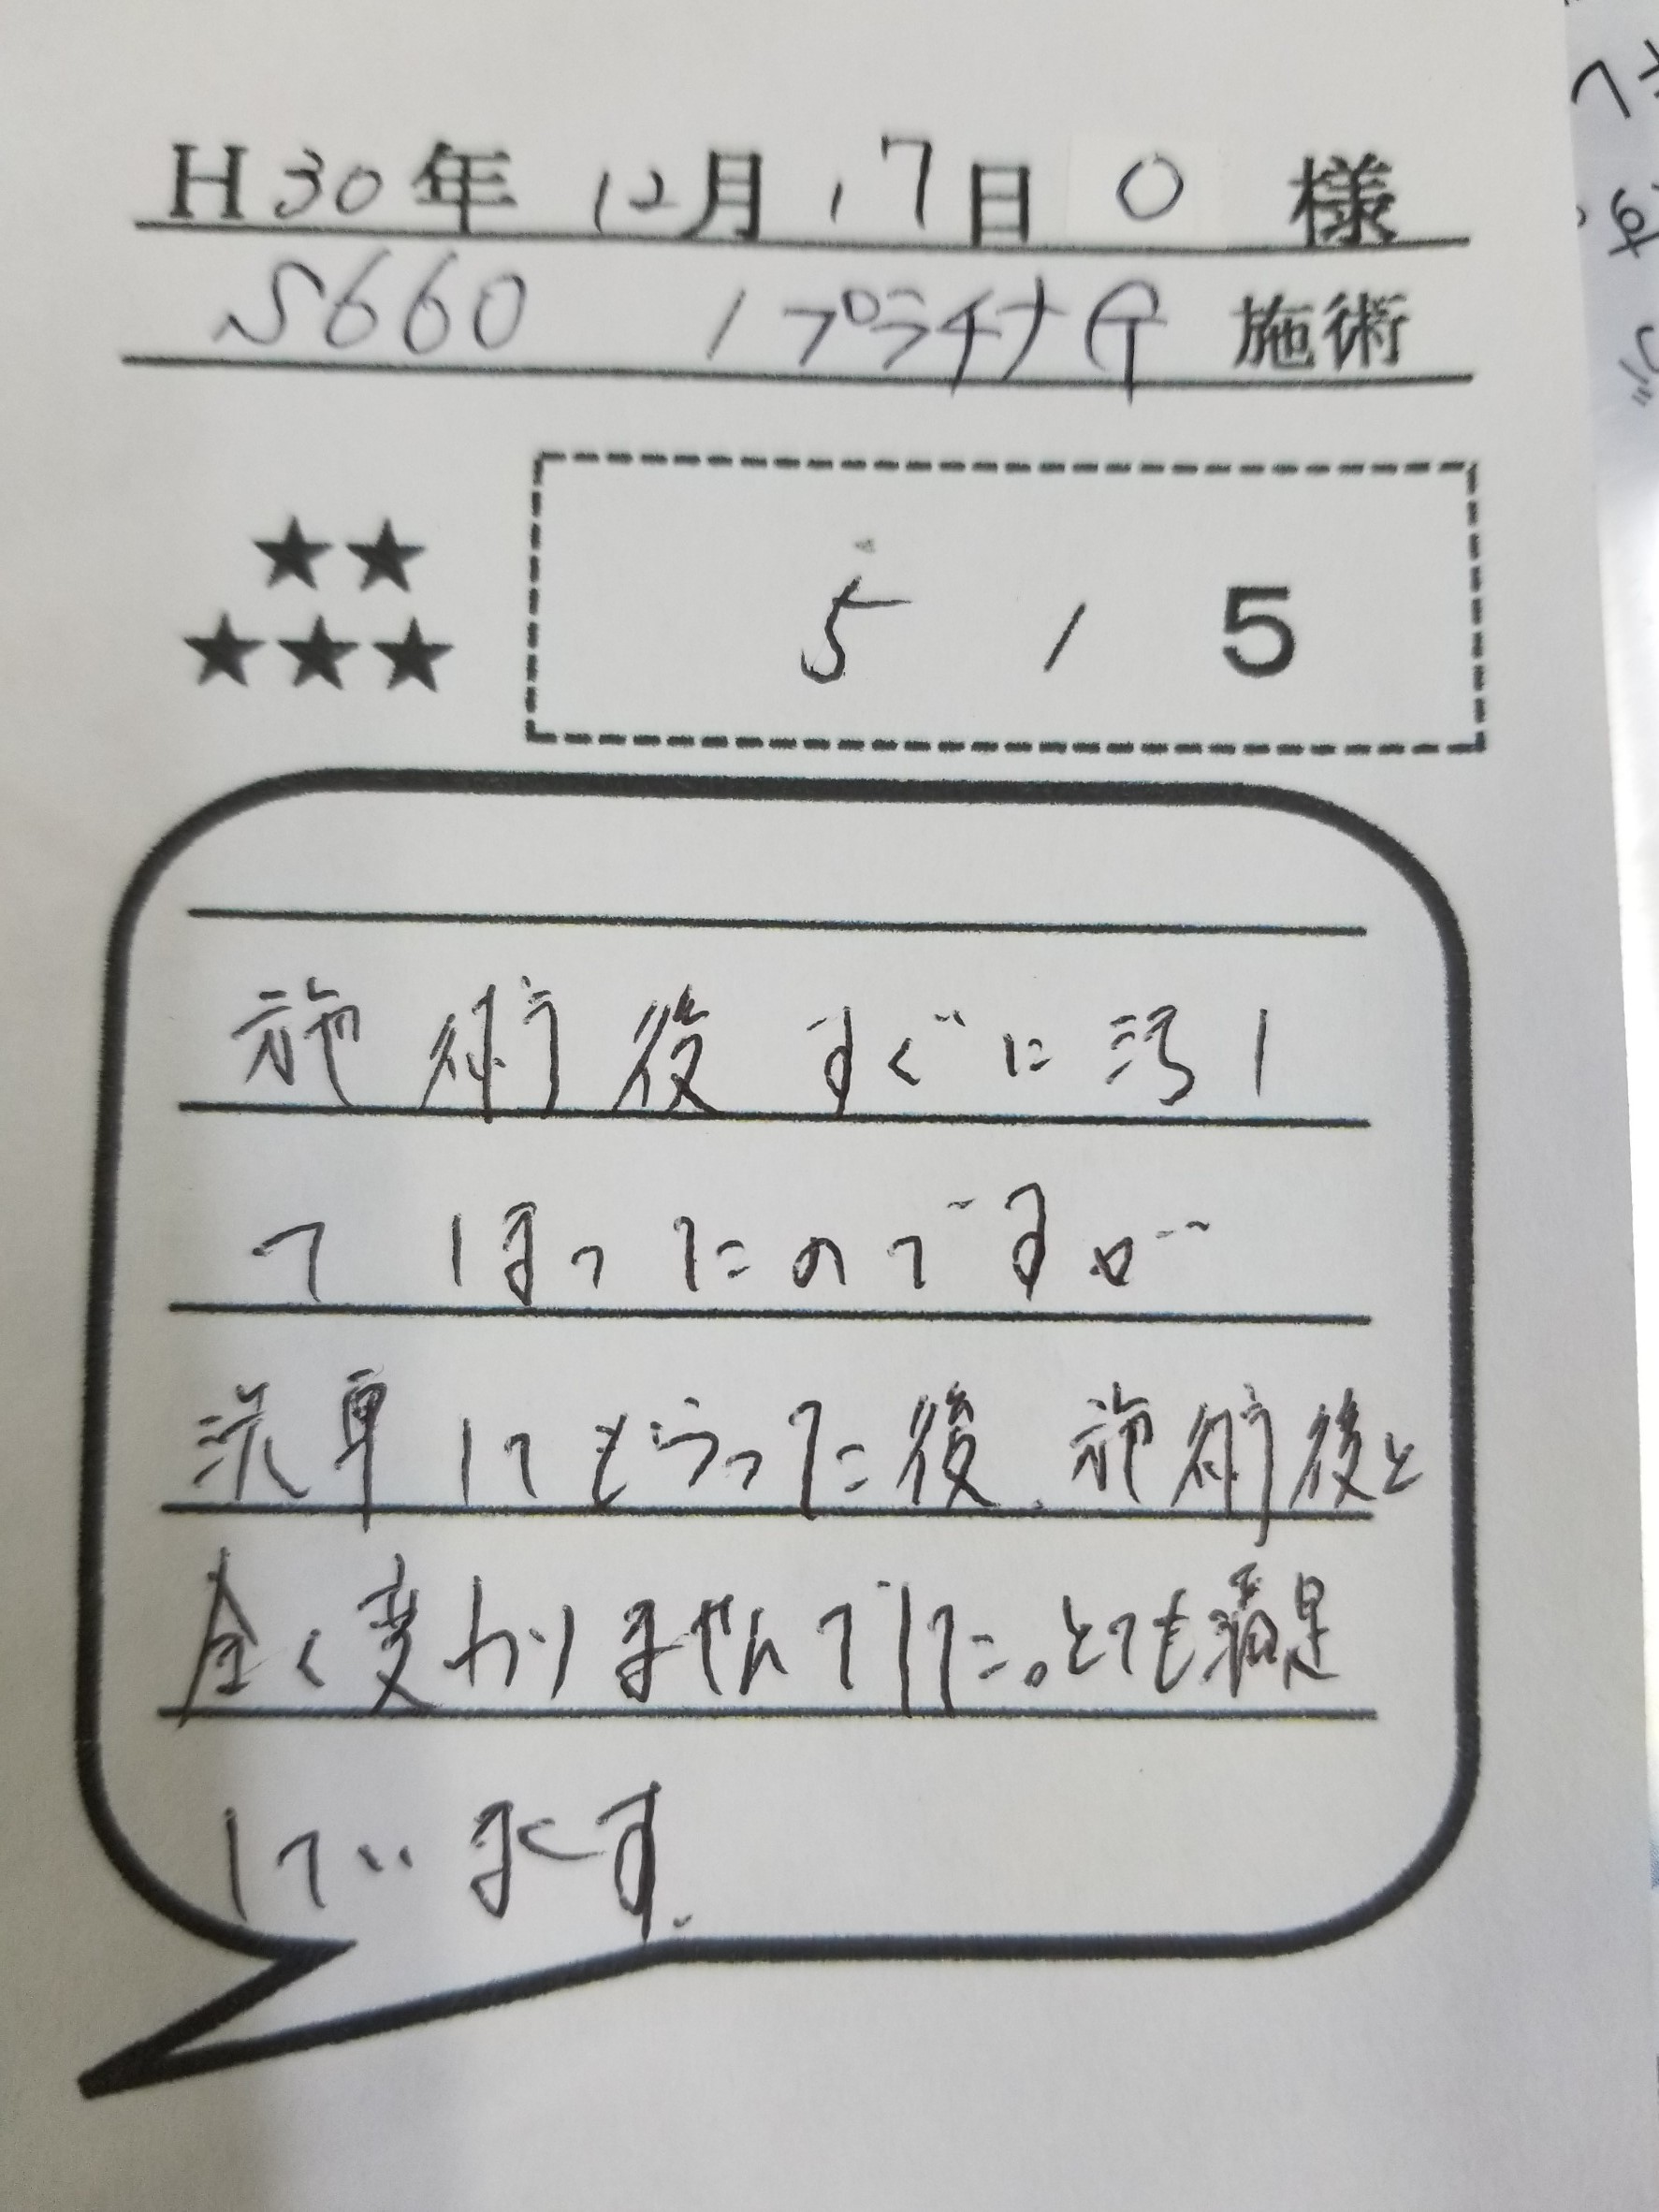 H30年 12月17日 O 様
S660 / プラチナ 施術
★★
★★★
5 / 5
施術後すぐに汚し
てしまったのですが
洗車してもらった後、施術後と
全く変わりませんでした。とても満足
しています。